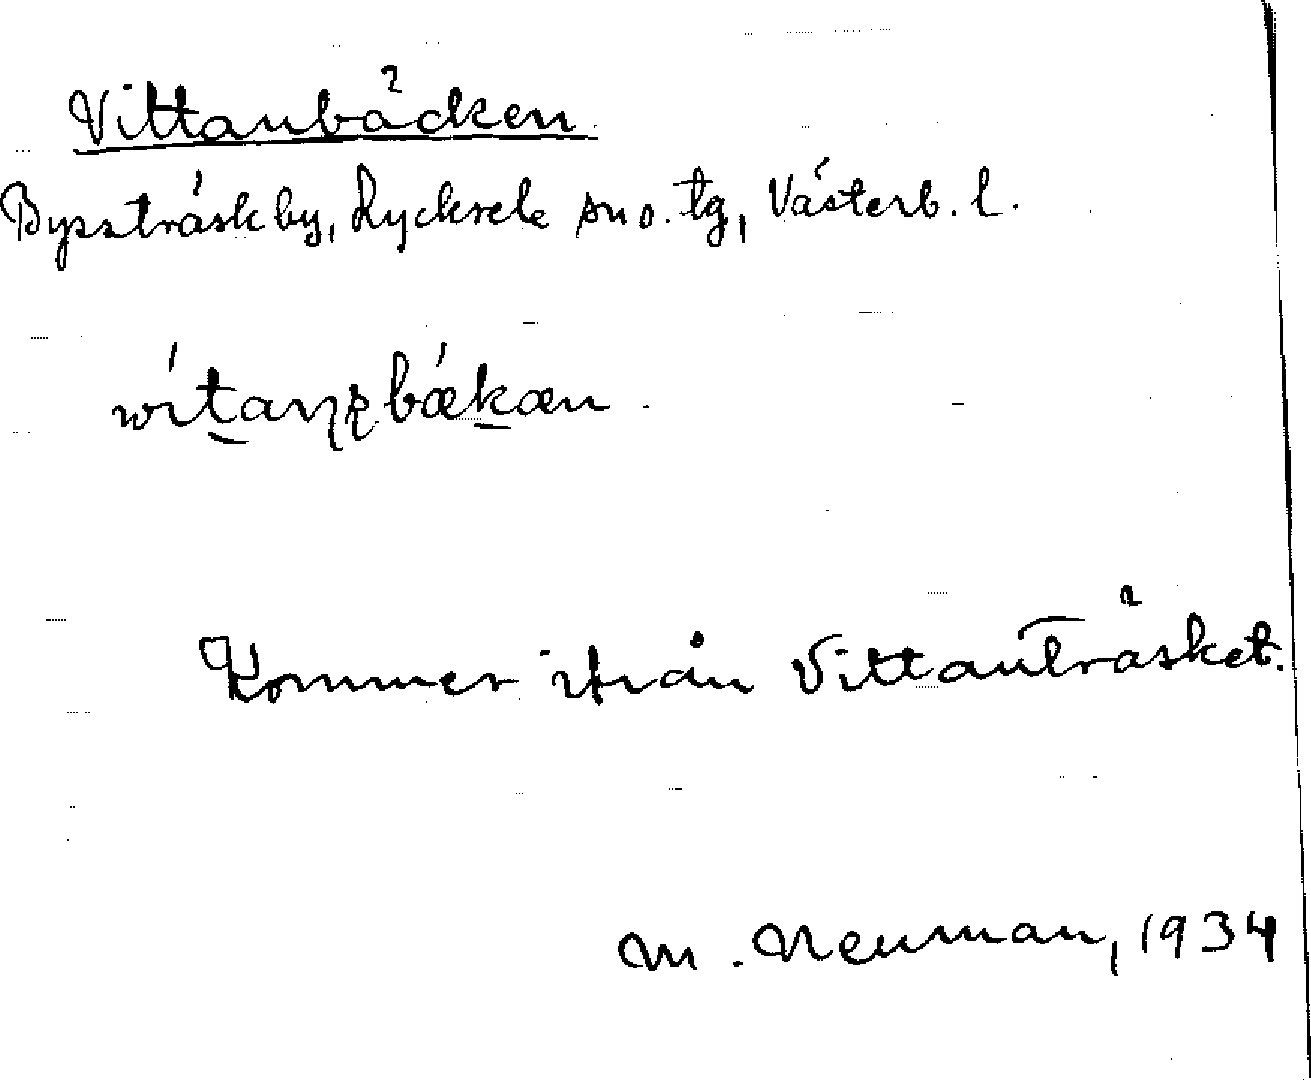 Vittanbäcken
Bysstråsk by, Lycksele sn o. tg, Västerb. l.
Kommer ifrån Vittanträsket.
M. Neuman, 1934